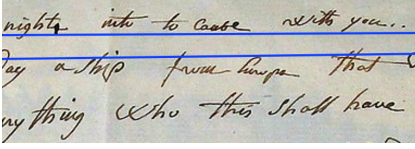 nights into to cause with you..
day a ship from Europe that
ny thing who this shall have